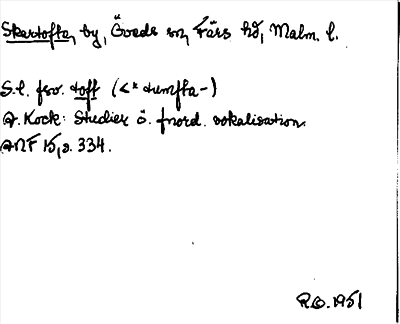 Skartofta, by, Öveds sn, Färs hd, Malm. l.
S.l. fsv. toft (<* tumfta-)
A. Kock: Studier ö. fnord. vokalisation.
ANF 15, s. 334.
R.O. 1951